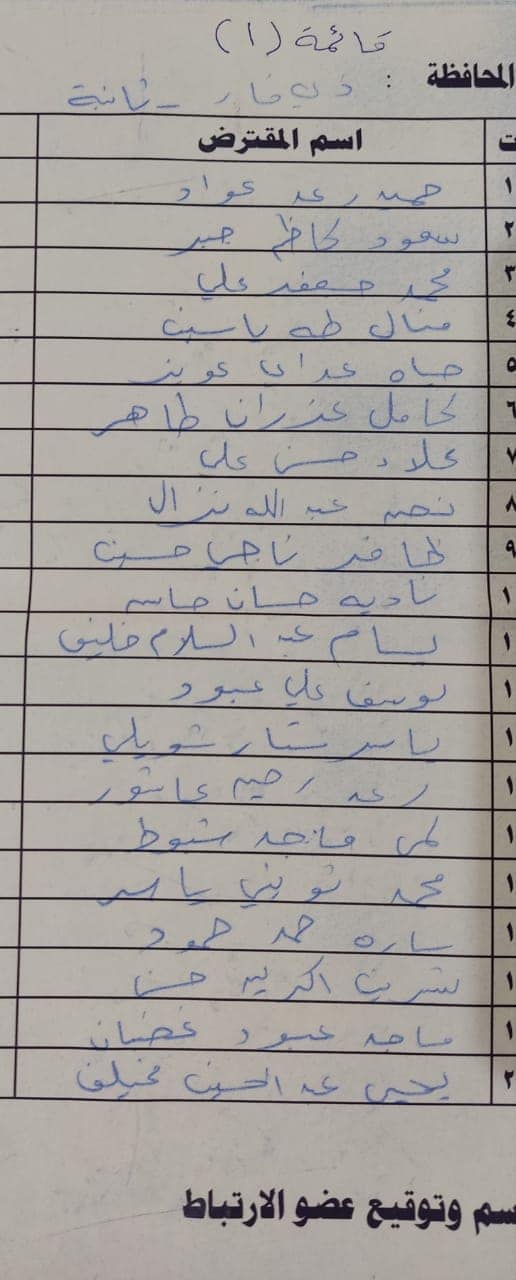 قائمة (١)
المحافظة : ذي قار - ثانية
ت اسم المقترض
١ حميد رعد عواد
٢ سعود كاظم جبر
٣ محمد جعفر علي
٤ منال طه ياسين
٥ حياه عداي عويز
٦ كامل عذران طاهر
٧ علاء حسن علي
٨ عبد الله نزال
٩ ظافر ناجي حسين
١ ناديه حسان جاسم
١ بسام عبد السلام خليف
١ يوسف علي عبود
١ ياسر ستار شويلي
١ رعد رحيم عاشور
١ لمى ماجد شبوط
١ محمد ثويني ياسر
١ ساره حمد حمود
١ نسرين اكريم حسن
١ ماجد عبود غضبان
٢ يحيى عبد الحسين مخيلف
سم وتوقيع عضو الارتباط